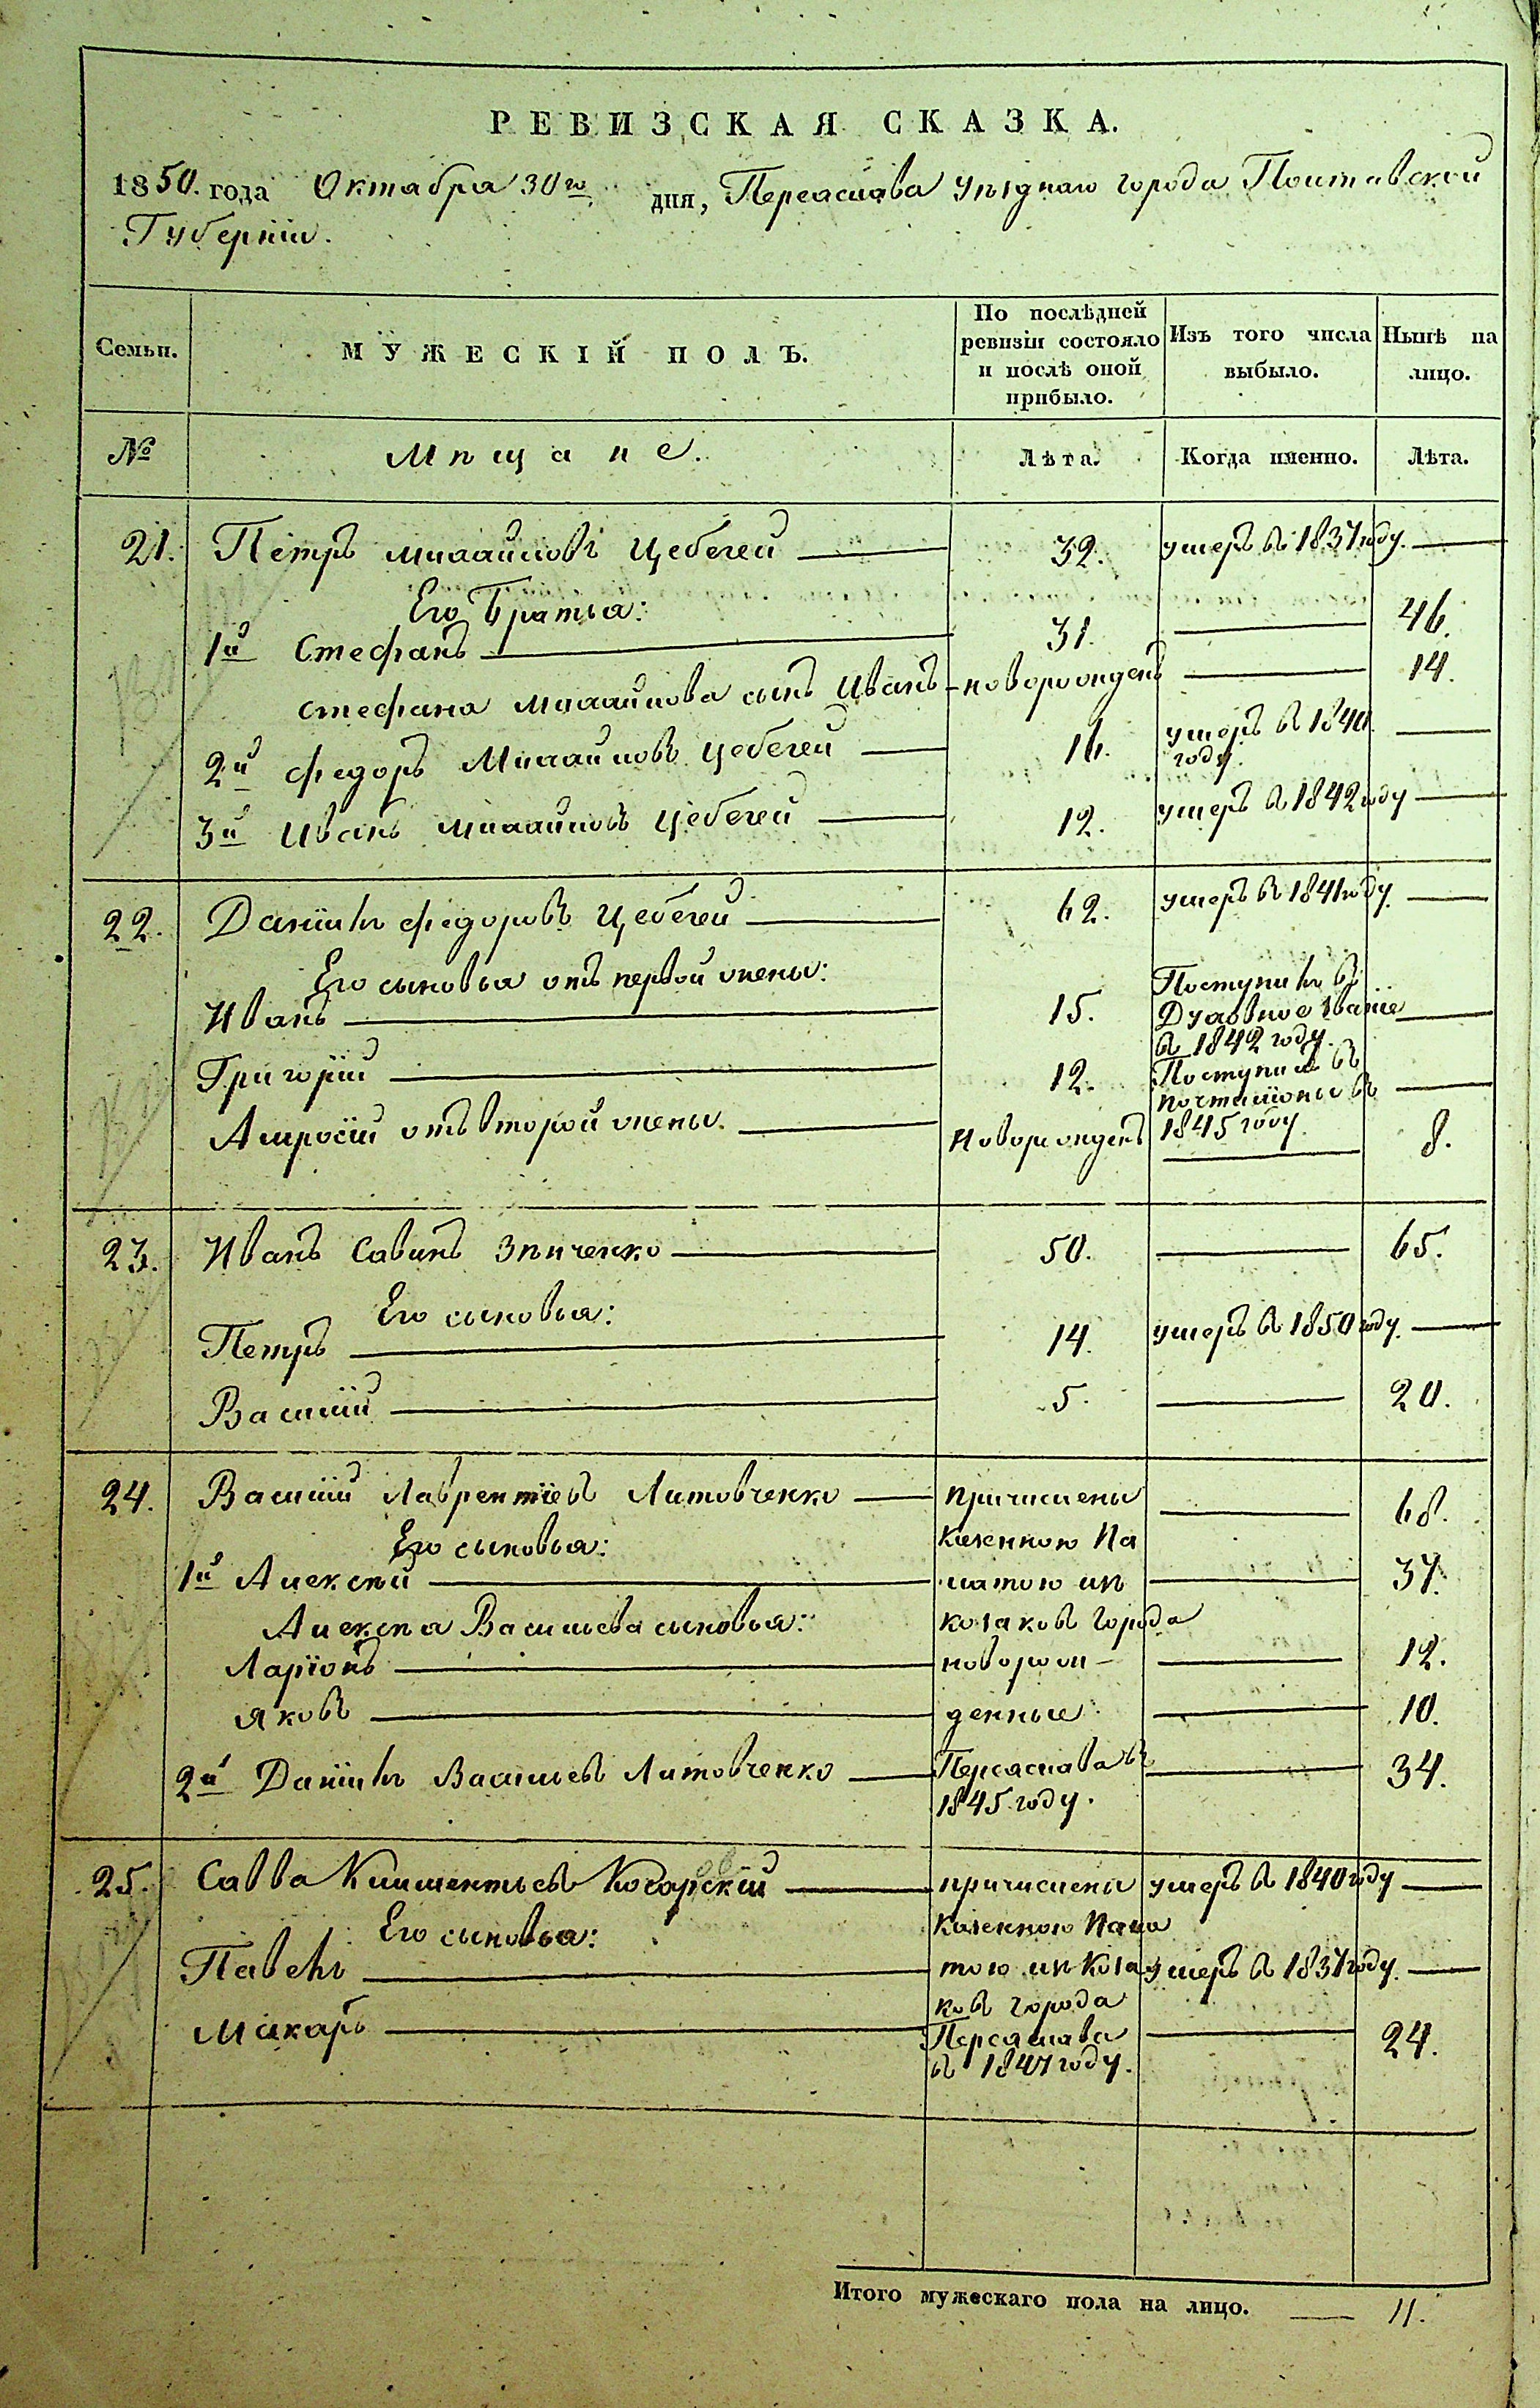 РЕВИЗСКАЯ СКАЗКА.
1850. года Октабра 30го дня, Переаслава уѣзднаго города Полтавской
Губерніи.
Семьи. МУЖЕСКІЙ ПОЛЪ. По послѣдней ревизіи состояло и послѣ оной прибыло. Изъ того числа выбыло. Нынѣ на лицо.
№ Мѣщане. Лѣта. Когда именно. Лѣта.
21. Петръ Михайловъ Цебегей 32. умеръ в 1837 году.
Его Братья:
1й Стефанъ 31. 46.
Стефана Михайлова сынъ Иванъ новорожденъ 14.
2й Федоръ Михайловъ Цебегей 16. умеръ в 1840. году.
3й Иванъ Михайловъ Цебегей 12. умеръ в 1842 году
22. Даніилъ Федоровъ Цебегей 62. умеръ в 1841 году.
Его сыновья отъ первой жены:
Иванъ 15. Поступилъ в Духовное званіе в 1842 году.
Григорій 12. Поступилъ в почталіоны в 1845 году.
Амросій отъ второй жены. Новорожденъ 8.
23. Иванъ Савинъ Зѣнченко 50. 65.
Его сыновья:
Петръ 14. умеръ в 1850 году.
Василій 5. 20.
24. Василій Лаврентіевъ Литовченко причислены 68.
Его сыновья: Казенною Па
1й Алексѣй латою изъ 37.
Алексѣя Васильева сыновья: козаковъ города
Ларіонъ новорож- 12.
Яковъ денные 10.
2й Даніилъ Васильевъ Литовченко Переаслава в 1845 году. 34.
25. Савва Климентьевъ Кочарскій причислены умеръ в 1840 году
Его сыновья: Казенною Пала
Павелъ тою изъ Коза умеръ в 1837 году.
ковъ города
Макаръ Переаслава 24.
в 1847 году.
Итого мужескаго пола на лицо. 11.